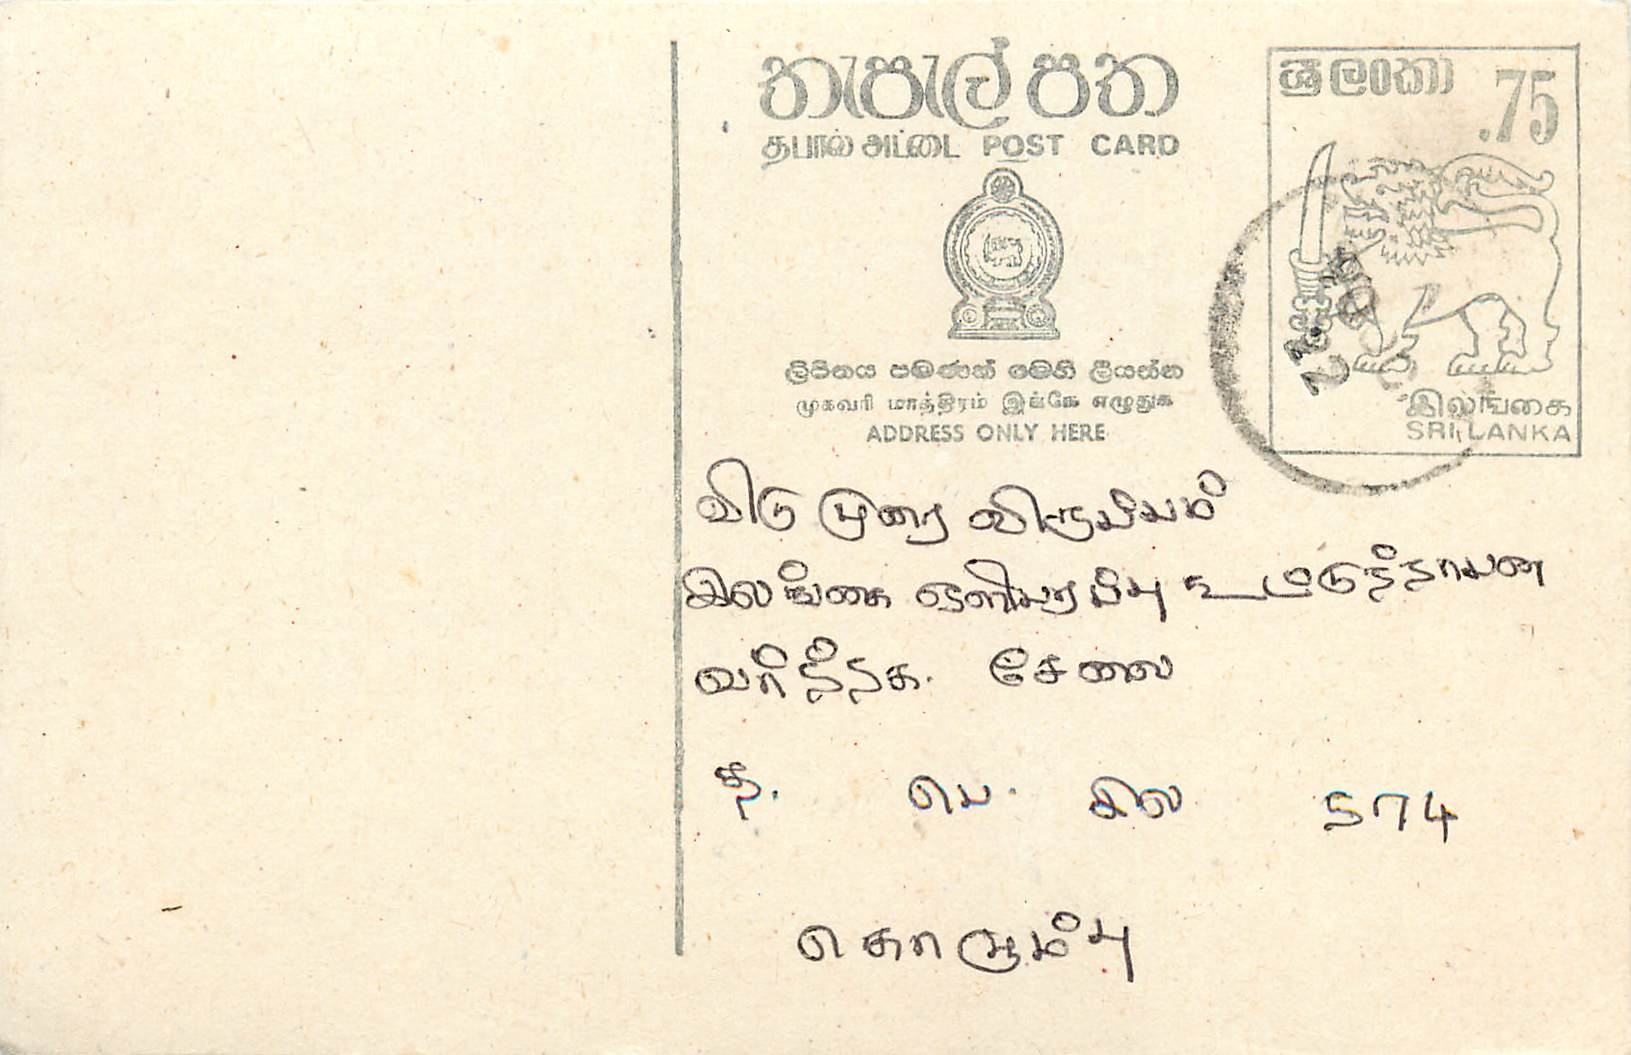 තැපැල් පත
தபால் அட்டை POST CARD
ශ්‍රී ලංකා .75
இலங்கை
SRI LANKA
ලිපිනය පමණක් මෙහි ලියන්න
முகவரி மாத்திரம் இங்கே எழுதுக
ADDRESS ONLY HERE
விடு முறை விருப்பம்
இலங்கை ஒளிபரப்பு
வர்த்தக. சேவை
த. பெ. இல 574
கொழும்பு